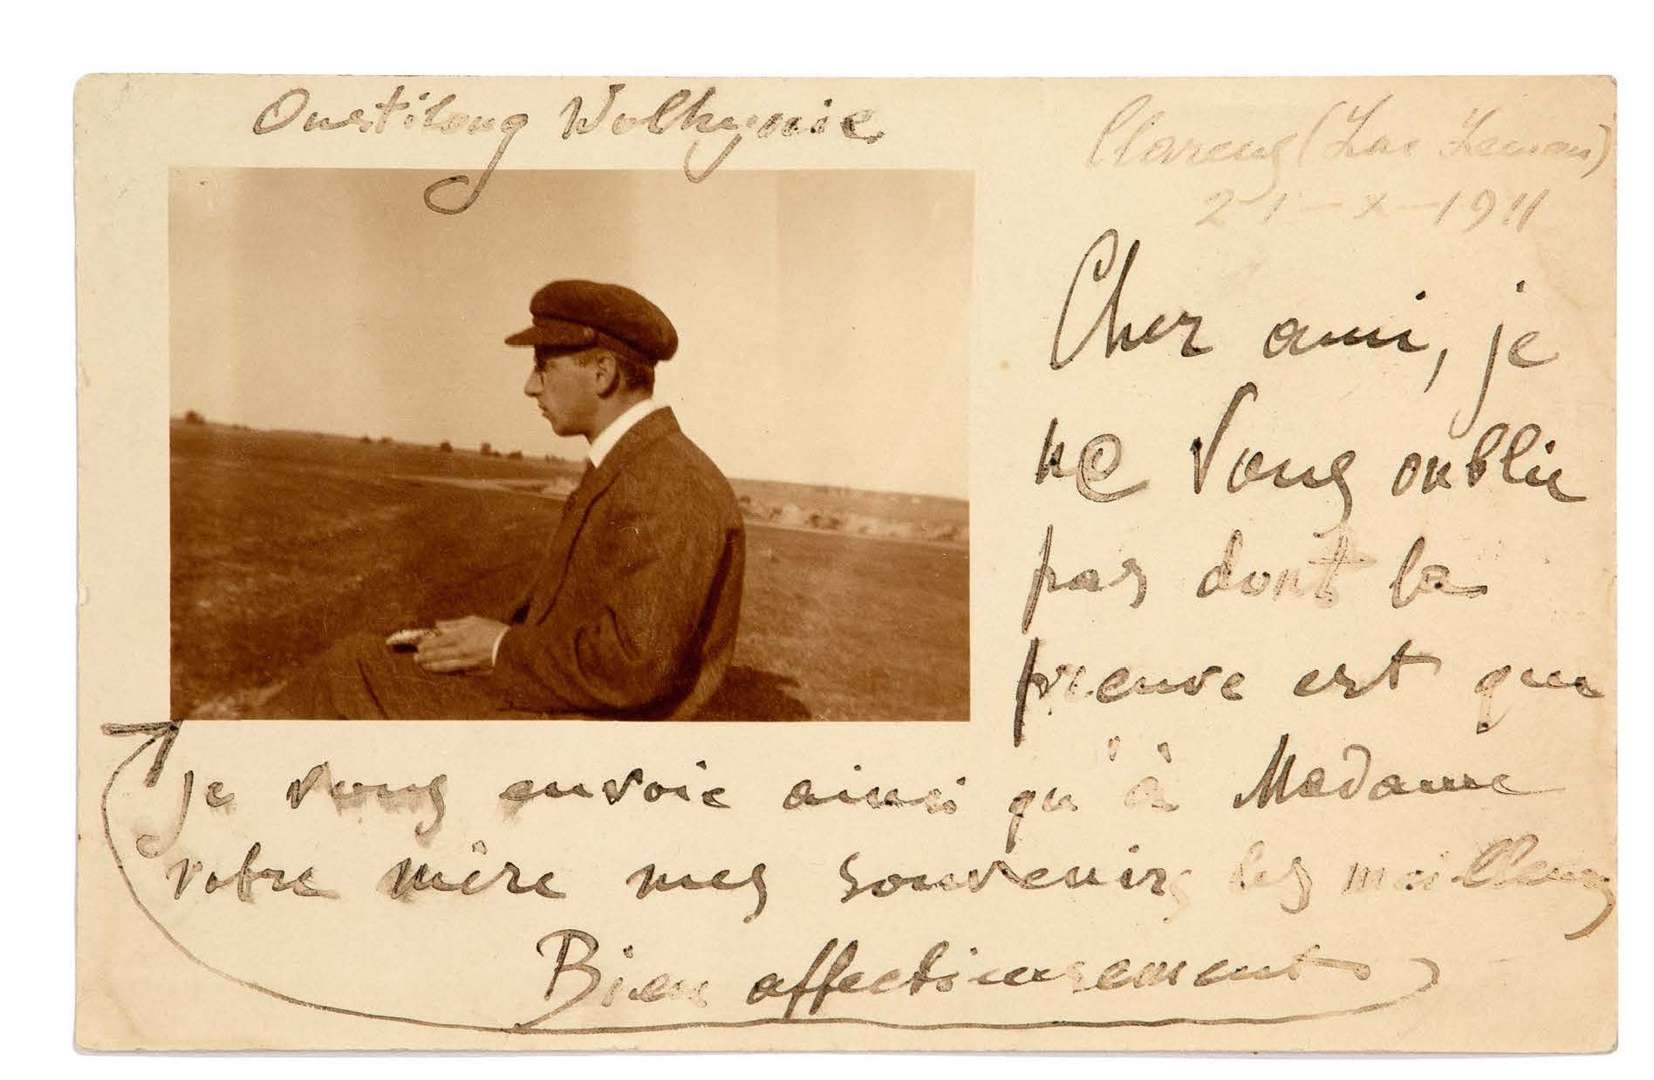 Oustiloug Wolhynie
Clarens (Lac Leman)
21-X-1911
Cher ami, je
ne Vous oublie
pas dont la
preuve est que
je vous envoie ainsi qu'à Madame
votre mère mes souvenirs les meilleurs
Bien affectieusement